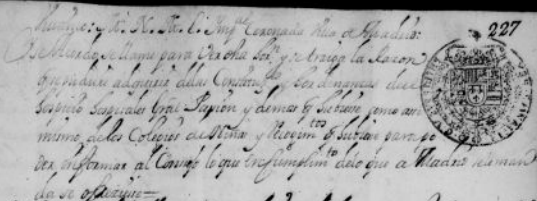 M. N. M. L. Imp. Coronada Villa de Madrid: 227
Se Acordó se llame para Ver esta y se traiga la Razon
que pudiere adquirirse delas Constituz.s y hordenanzas del
Hospicio Hospitales Gral Pasion, y demas q hubiere como asi
mismo, delos Colegios de Niñas y Recogim.tos q hubiere para po
der, informar al Consejo lo que en cumplim.to delo que a Madrid se le man
da se ofreziere=